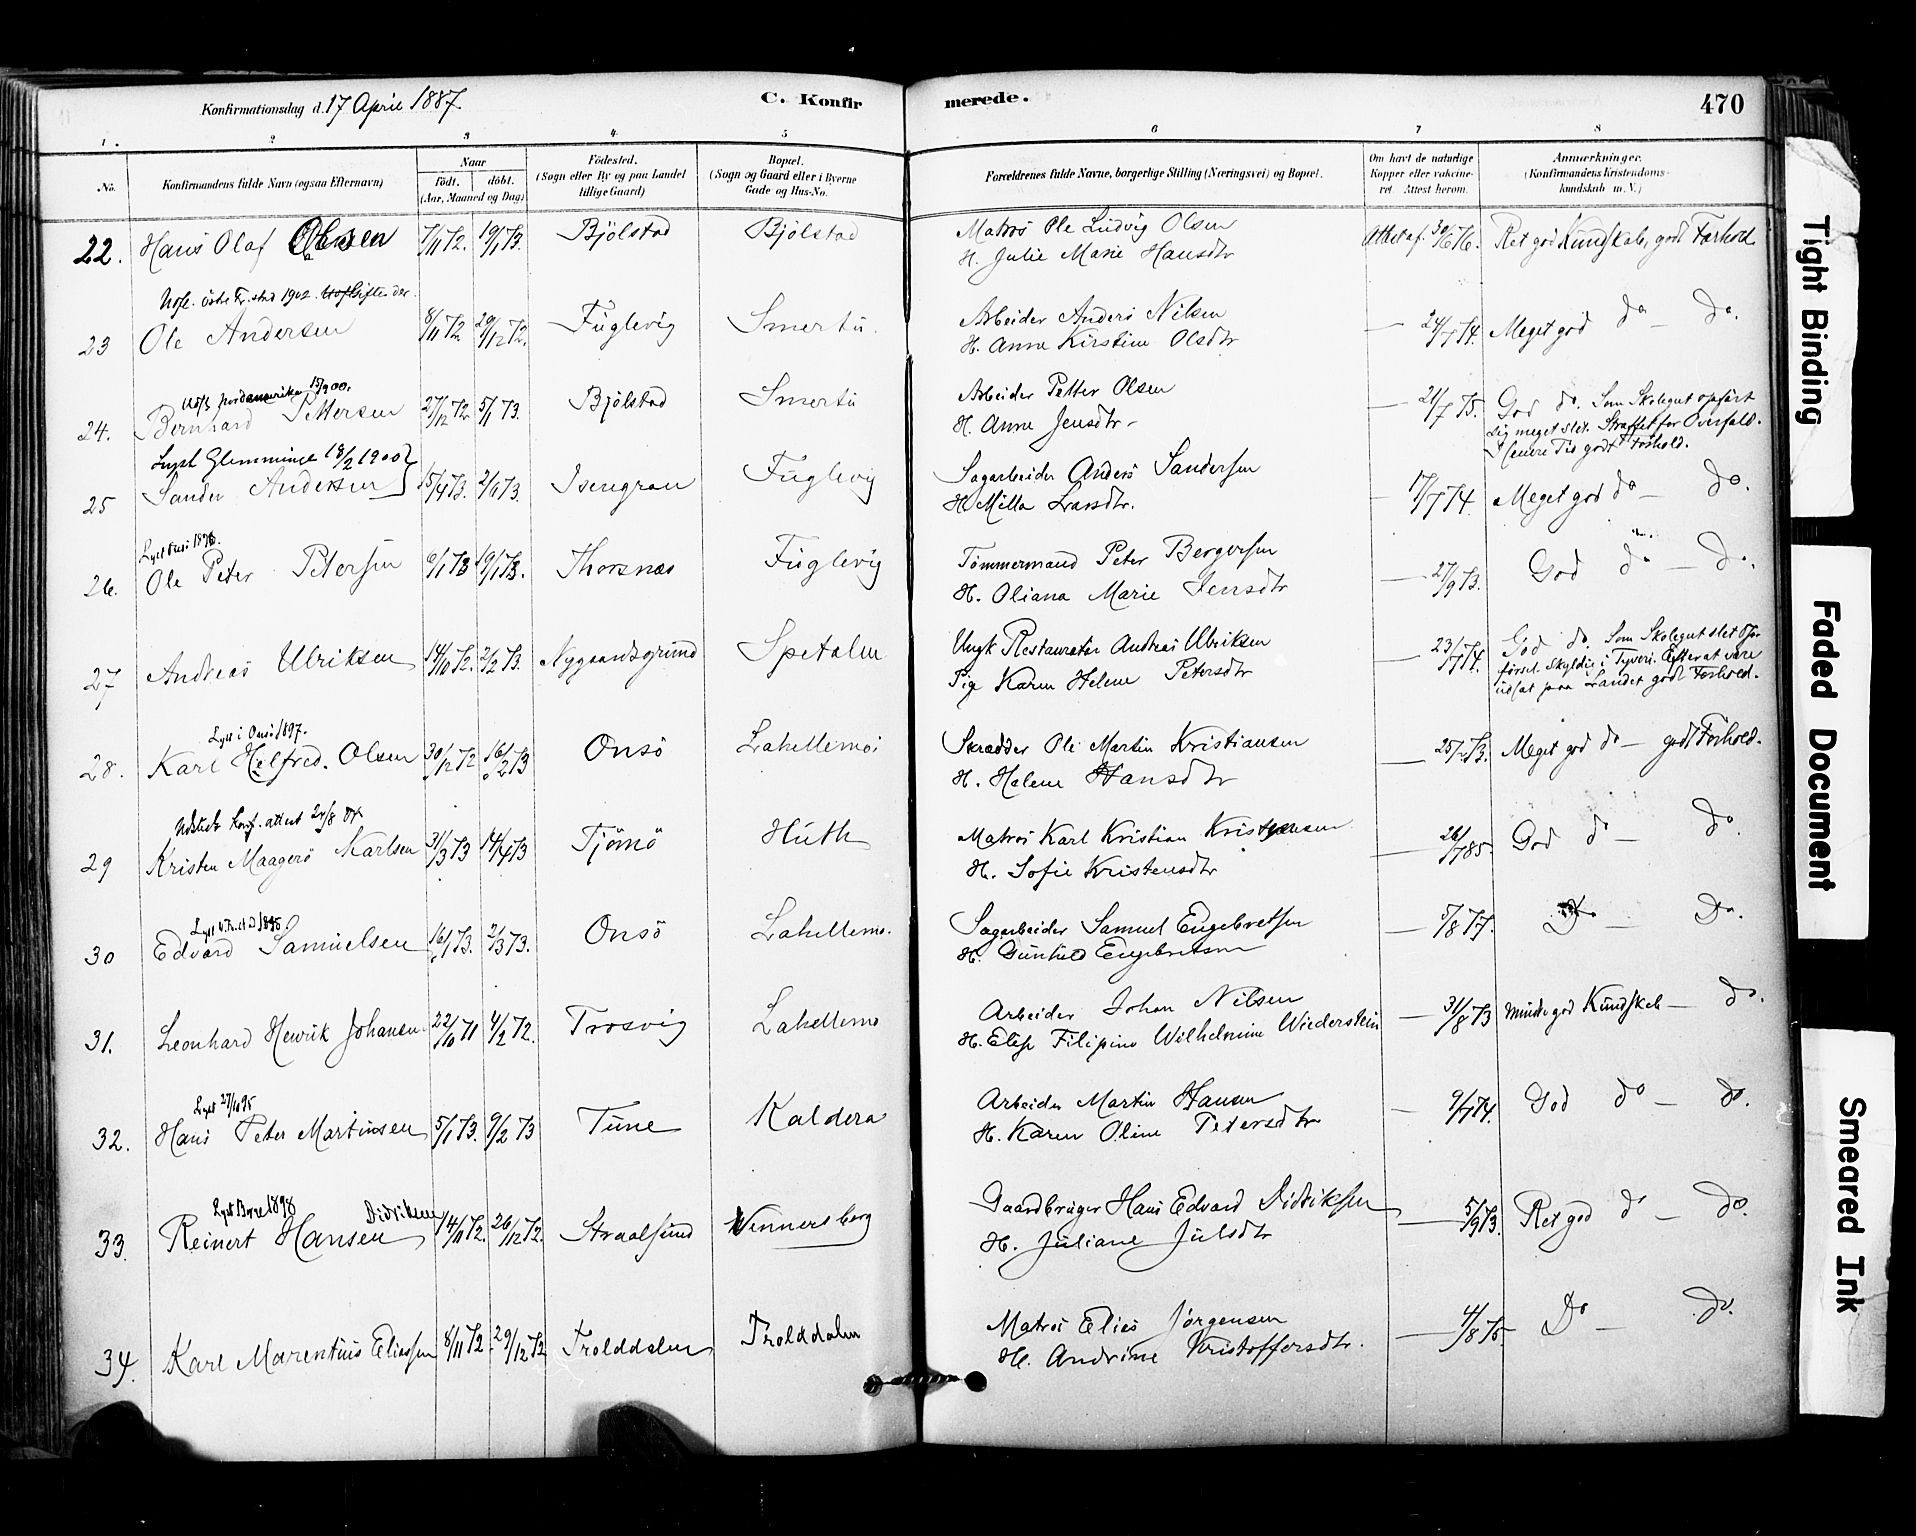 Konfirmationsdag d. 17 April 1887.
C. Konfirmerede.
470
1. 2 3 4 5 6 7 8
No.
Konfirmandens fulde Navn (ogsaa Efternavn)
Naar
født. døbt.
(Aar, Maaned og Dag)
Födested.
(Sogn eller By og paa Landet
tillige Gaard)
Bopæl.
(Sogn og Gaard eller i Byerne
Gade og Hus-No.
Forældrenes fulde Navne, borgerlige Stilling (Næringsvei) og Bopæl.
Om havt de naturlige
Kopper eller vakcine-
ret. Attest herom.
Anmærkninger.
(Konfirmandens Kristendoms-
kundskab m. V.)
22. Hans Olaf Olsen 7/11 72. 19/1 73. Bjölstad Bjölstad
Matros Ole Ludvig Olsen Attest af 30/6 76. Ret god Kundskab, godt Forhold.
H. Julie Marie Hansdtr
1902
23 Ole Andersen 8/11 72. 29/12 72. Fuglevig Smertu.
Arbeider Anders Nilsen — 24/7 74. Meget god do — do.
H. Anne Kirstine Olsdtr
Nordamerika 15/9 00.
24. Bernhard Pettersen 27/12 72 5/1 73. Bjölstad Smertu
Arbeider Petter Olsen — 21/7 75. God do. Som Skolegut opført
H. Anne Jensdtr. sig meget slet. Straffet for Overfald.
I senere Tid godt Forhold.
Lyst Glemminge 18/2 1900
25 Sander Andersen 15/4 73. 2/6 73. Isengran Fuglevig
Sagarbeider Anders Sandersen — 17/7 74. Meget god do — do.
H. Milla Larsdtr.
Lyst 1896.
26. Ole Peter Petersen 6/1 73 19/1 73. Thorsnæs Fuglevig
Tømmermand Peter Bergersen — 27/9 73. God do — do.
H. Oliana Marie Jensdtr
27 Andreas Ulriksen 14/10 72. 2/2 73. Nygaardsgrund Spetalen
Ungk Restauratör Andreas Ulriksen — 23/7 74. God do. Som Skolegut slet Opfør-
Pig Karen Helene Petersdtr förset. Skyldig i Tyveri. Efter at være
udsat paa Landet godt Forhold.
Lyst i Onsö 1897.
28. Karl Helfred. Olsen 30/12 72 16/2 73 Onsö Lahellemoi
Skrædder Ole Martin Kristiansen — 25/2 73. Meget god do — godt Forhold.
H. Helene Hansdtr
Konf. attest 24/8
29 Kristen Maagerö Karlsen 31/3 73 14/4 73 Tjömö Huth
Matros Karl Kristian Kristensen — 26/1 85. God do — do
H. Sofie Kristensdtr
Lyst 1895
30 Edvard Samuelsen 16/1 73. 2/3 73. Onsö Lahellemo.
Sagarbeider Samuel Engebretsen — 5/8 77. Do — Do.
H. Gunhild Engebretsen
31. Leonhard Henrik Johansen 22/10 71 4/2 72. Trosvig Lahellemo
Arbeider Johan Nilsen — 31/8 73 mindre god Kundskab — do.
H. Elise Filipine Wilhelmine Wiederstein
Lyst 27/10 95
32. Hans Peter Martinsen 5/1 73. 9/2 73 Tune Kaldera
Arbeider Martin Hansen — 9/7 74. God do — do.
H. Karen Oline Petersdtr
Lyst Borge 1898
Didriksen
33. Reinert Hansen 14/11 72. 26/12 72. Straalsund Vennersborg
Gaardbruger Hans Edvard Didriksen — 5/9 73. Ret god do — do.
H. Juliane Julsdtr
34. Karl Marentius Eliassen 8/11 72 29/12 72 Trolddalen Trolddalen
Matros Elias Jörgensen — 4/8 75. Do — do.
H. Andrine Kristoffersdtr.
Tight Binding
Faded Document
Smeared Ink